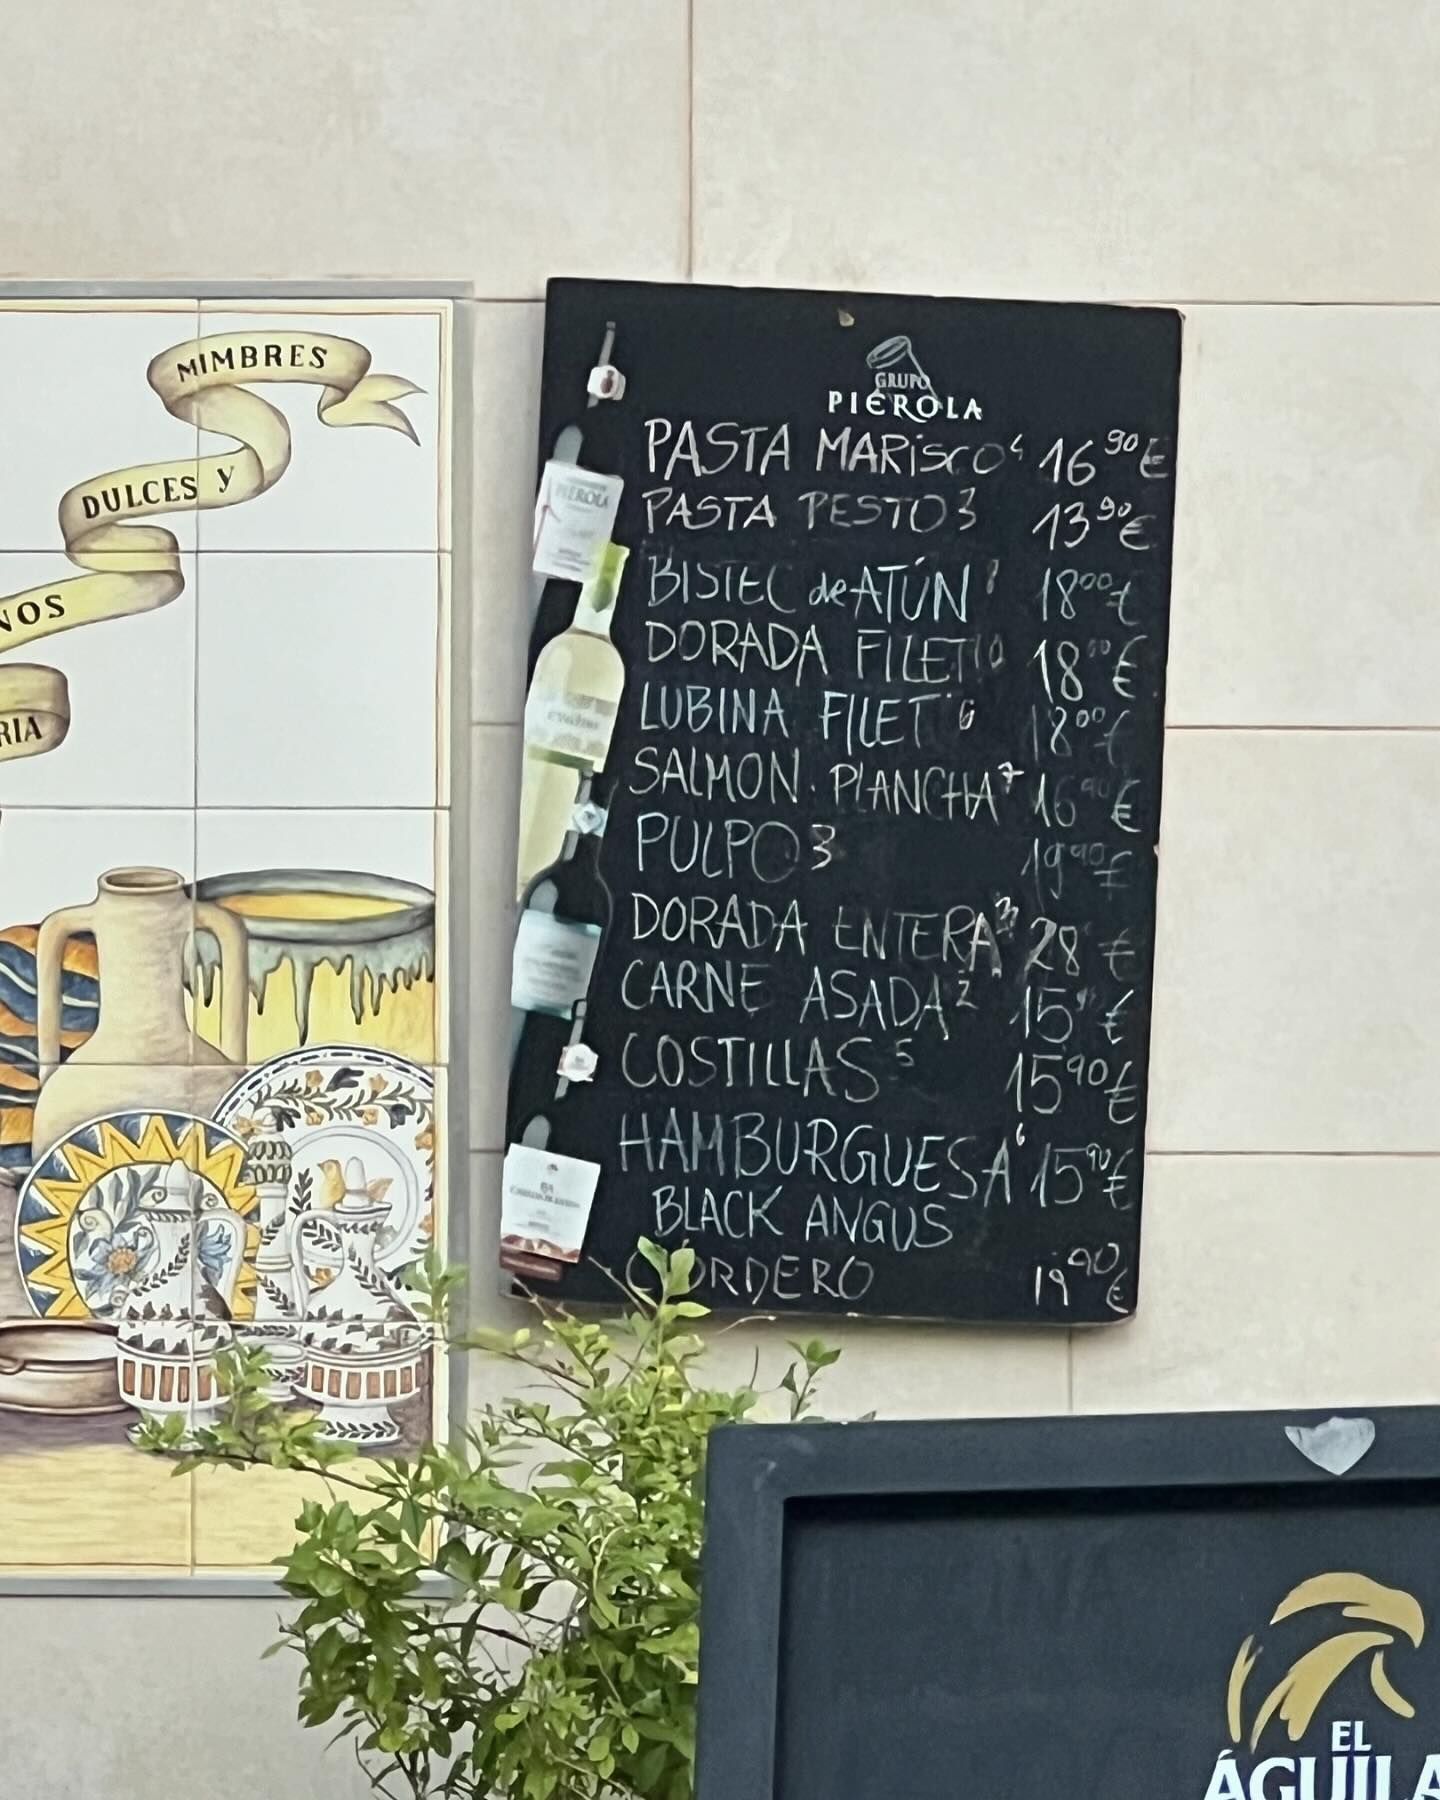 MIMBRES
DULCES Y
NOS
RIA
GRUPO
PIÉROLA
PASTA MARisco 4 16 90 €
PASTA PESTO 3 13 90 €
BISTEC de ATÚN 18 00 €
DORADA FILET 10 18 00 €
LUBINA FILET 6 18 00 €
SALMON. PLANCHA 7 16 90 €
PULPO 3 19 90 €
DORADA ENTERA 28 €
CARNE ASADA 2 15 €
COSTILLAS 5 15 90 €
HAMBURGUESA 6 15 90 €
BLACK ANGUS
CORDERO 19 90 €
PIÉROLA
EL
ÁGUILA